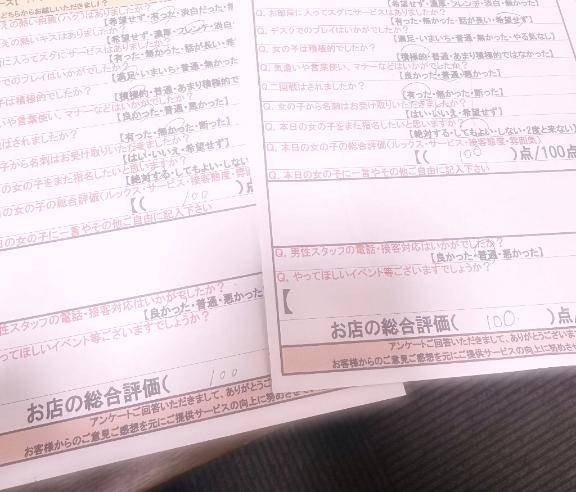 どちらからお越しいただきましたか？
えの熱い抱擁(ハグ)はありましたか？
【希望せず・有った・淡白だった・無
えの熱いキスはありましたか？
【希望せず・濃厚・フレンチ・淡白・
に入ってスグにサービスはありましたか？
【有った・無かった・話が長い・希
でのプレイはいかがでしたか？
【満足・いまいち・無かった
は積極的でしたか？
【積極的・普通・あまり積極的で
いや言葉使い、マナーなどはいかがでしたか？
【良かった・普通・悪かった】
はされましたか？
【有った・無かった・断った】
子から名刺はお受け取りいただきましたか？
【はい・いいえ・希望せず】
の女の子をまた指名したいと思いますか？
【絶対する・してもよい・しない
の女の子の総合評価(ルックス・サービス・接客態度・雰囲
【( 100 )点
日の女の子に一言やその他ご自由に記入下さい
性スタッフの電話・接客対応はいかがでしたか？
【良かった・普通・悪かった
ってほしいイベント等ございますでしょうか？
お店の総合評価( 100
アンケートご回答いただきまして、ありがとうご
お客様からのご意見ご感想を元にご提供サービスの向上に努め
【希望せず・濃厚・フレンチ・淡白・無かった】
Q. お部屋に入ってスグにサービスはありましたか？
【有った・無かった・話が長い・希望せず】
Q. デスクでのプレイはいかがでしたか？
【満足・いまいち・無かった・やる気なし】
Q. 女の子は積極的でしたか？
【積極的・普通・あまり積極的ではなかった】
Q. 気遣いや言葉使い、マナーなどはいかがでしたか？
【良かった・普通・悪かった】
Q. 二回戦はされましたか？
【有った・無かった・断った】
Q. 女の子から名刺はお受け取りいただきましたか？
【はい・いいえ・希望せず】
Q. 本日の女の子をまた指名したいと思いますか？
【絶対する・してもよい・しない・2度と来ない】
Q. 本日の女の子の総合評価(ルックス・サービス・接客態度・雰囲気)
【( 100 )点/100点
Q. 本日の女の子に一言やその他ご自由に記入下さい
Q. 男性スタッフの電話・接客対応はいかがでしたか？
【良かった・普通・悪かった】
Q. やってほしいイベント等ございますでしょうか？
【
お店の総合評価( 100 )点/
アンケートご回答いただきまして、ありがとうござい
お客様からのご意見ご感想を元にご提供サービスの向上に努めさせ